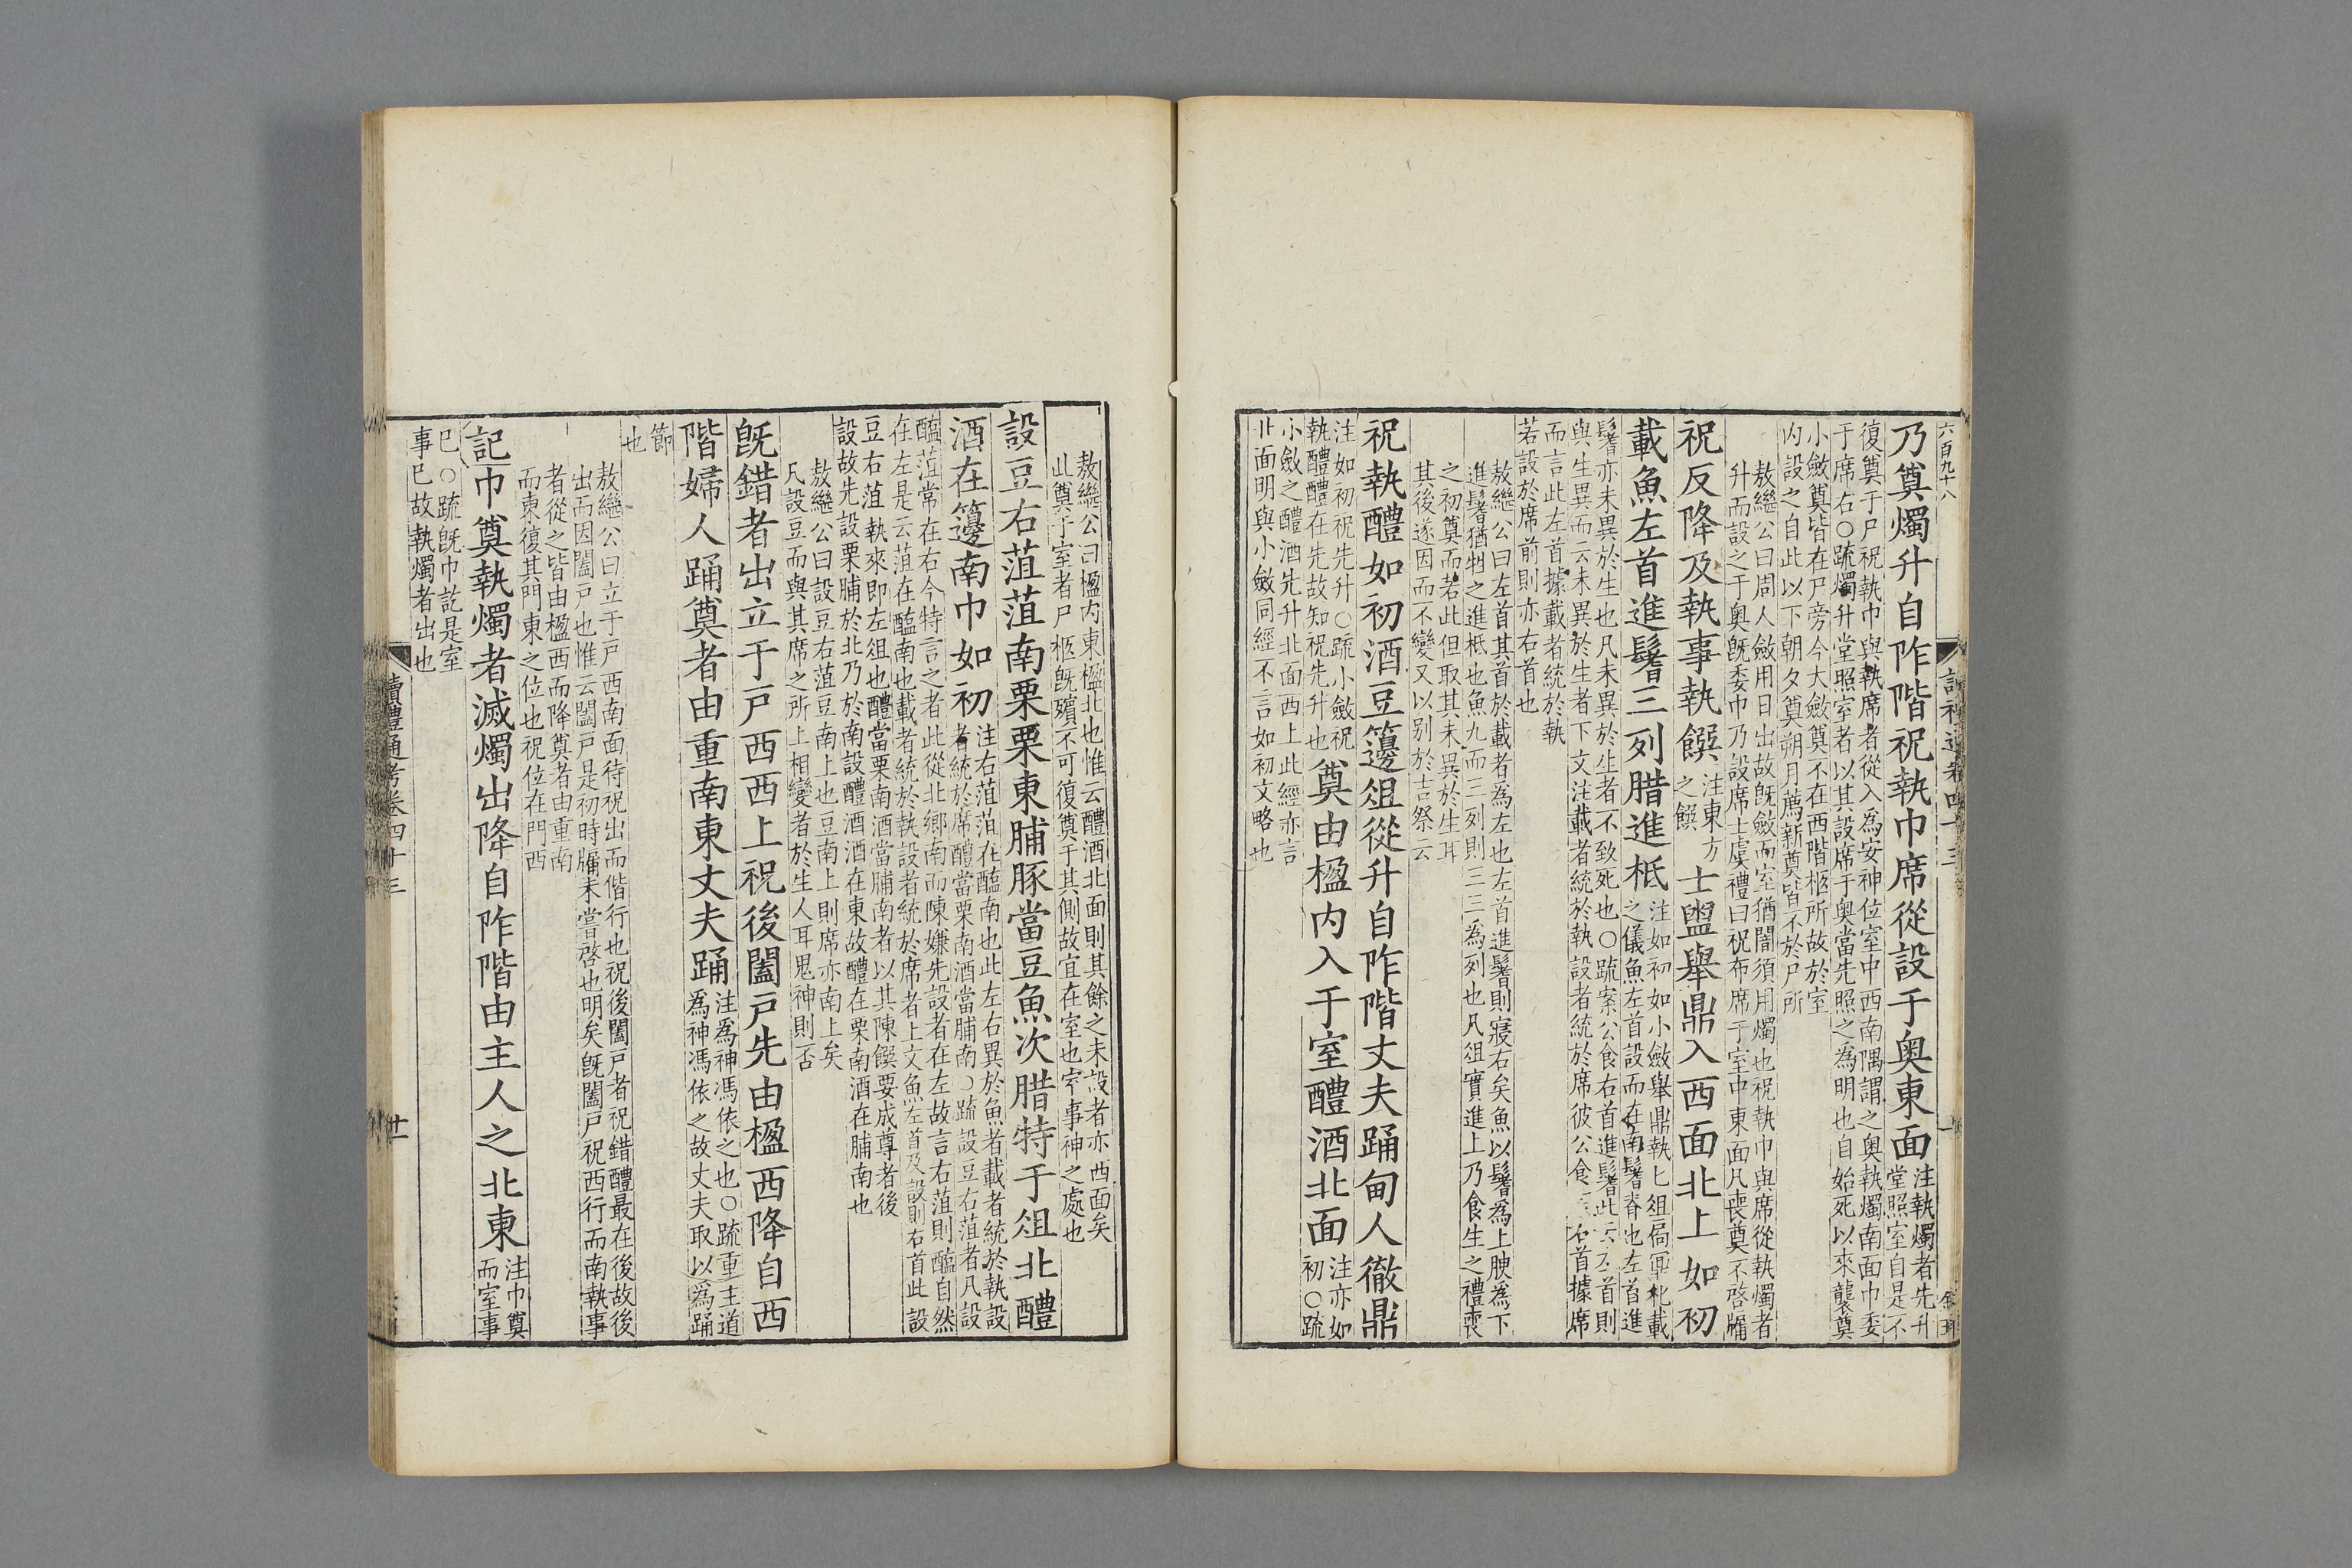 六百九十八
乃奠燭升自阼階祝執巾席從設于奧東面注執燭者先升堂照室自是不
復奠于尸祝執巾與執席者從入為安神位室中西南隅謂之奧執燭南面巾委
于席右○疏燭升堂照室者以其設席于奧當先照之為明也自始死以來襲奠
小斂奠皆在尸旁今大斂奠不在西階柩所故於室
内設之自此以下朝夕奠朔月薦新奠皆不於尸所
敖繼公曰周人斂用日出故旣斂而室猶闇須用燭也祝執巾與席從執燭者
升而設之于奧旣委巾乃設席士虞禮曰祝布席于室中東面凡喪奠不啓牖
祝反降及執事執饌注東方之饌士盥舉鼎入西面北上如初
載魚左首進鬐三列腊進柢注如初如小斂舉鼎執匕俎扃鼏朼載之儀魚左首設而在南鬐脊也左首進
鬐亦未異於生也凡未異於生者不致死也○疏案公食右首進鬐此云左首則
與生異而云未異於生者下文注載者統於執設者統於席彼公食右首據席
而言此左首據載者統於執
若設於席前則亦右首也
敖繼公曰左首其首於載者為左也左首進鬐則寢右矣魚以鬐為上腴為下
進鬐猶牲之進柢也魚九而三列則三三為列也凡俎實進上乃食生之禮喪
之初奠而若此但取其未異於生耳
其後遂因而不變又以别於吉祭云
祝執醴如初酒豆籩俎從升自阼階丈夫踊甸人徹鼎
注如初祝先升○疏小斂祝
執醴醴在先故知祝先升也奠由楹内入于室醴酒北面注亦如初○疏
小斂之醴酒先升北面西上此經亦言
北面明與小斂同經不言如初文略也
敖繼公曰楹内東楹北也惟云醴酒北面則其餘之未設者亦西面矣
此奠于室者尸柩旣殯不可復奠于其側故宜在室也室事神之處也
設豆右菹菹南栗栗東脯豚當豆魚次腊特于俎北醴
酒在籩南巾如初注右菹菹在醢南也此左右異於魚者載者統於執設者統於席醴當栗南酒當脯南○疏設豆右菹者凡設
醢菹常在右今特言之者此從北鄉南而陳嫌先設者在左故言右菹則醢自然
在左是云菹在醢南也載者統於執設者統於席者上文魚左首及設則右首此設
豆右菹執來即左俎也醴當栗南酒當脯南者以其陳饌要成尊者後
設故先設栗脯於北乃於南設醴酒酒在東故醴在栗南酒在脯南也
敖繼公曰設豆右菹豆南上也豆南上則席亦南上矣
凡設豆而與其席之所上相變者於生人耳鬼神則否
旣錯者出立于戸西西上祝後闔戸先由楹西降自西
階婦人踊奠者由重南東丈夫踊注為神馮依之也○疏重主道為神馮依之故丈夫取以為踊
節
也
敖繼公曰立于戸西南面待祝出而偕行也祝後闔戸者祝錯醴最在後故後
出而因闔戸也惟云闔戸是初時牖未嘗啓也明矣旣闔戸祝西行而南執事
者從之皆由楹西而降奠者由重南
而東復其門東之位也祝位在門西
記巾奠執燭者滅燭出降自阼階由主人之北東注巾奠而室事
已○疏旣巾訖是室
事已故執燭者出也
讀禮通考卷四十三
廿一